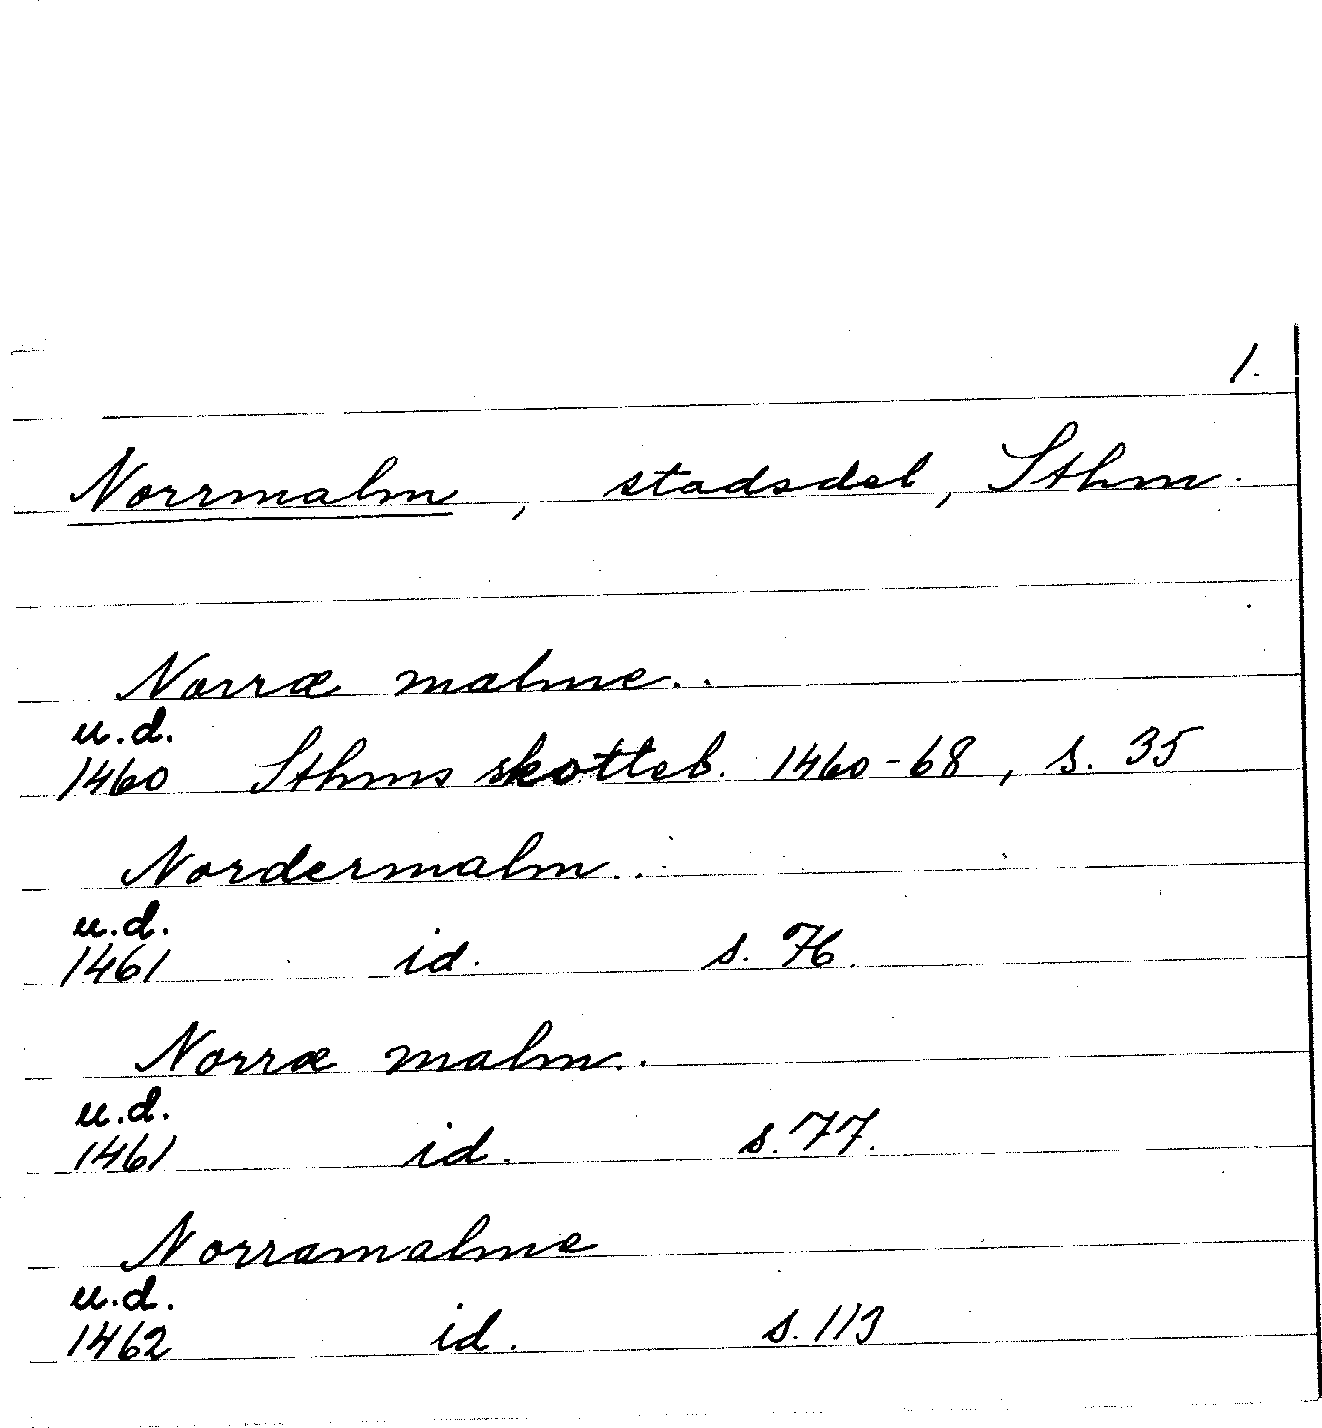 1.
Norrmalm, stadsdel, Sthm.
Norræ malme..
u.d.
1460 Sthms skotteb. 1460-68, s. 35
Nordermalm..
u.d.
1461 id. s. 76.
Norræ malm..
u.d.
1461 id. s. 77.
Norramalme
u.d.
1462 id. s. 113